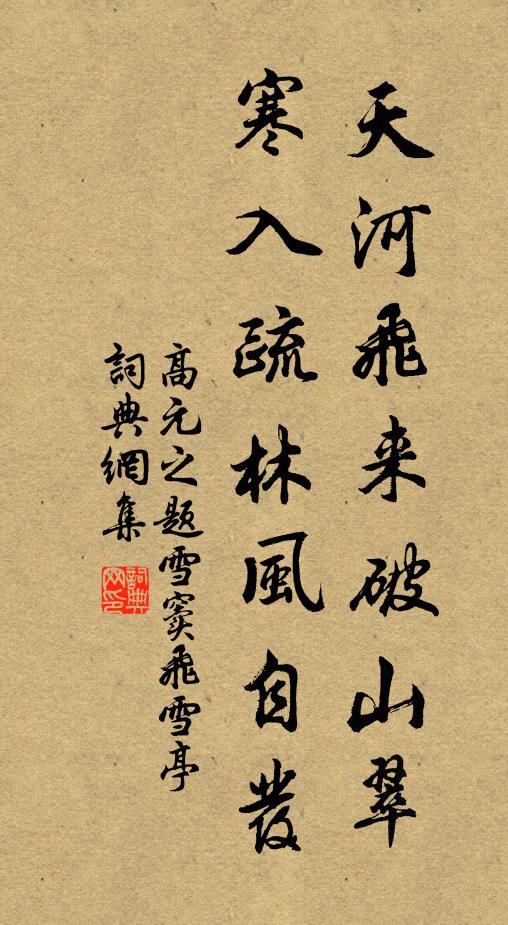 天河飛来破山翠
寒入疏林風自發
高元之題雪竇飛雪亭
詞典網集
詞典网印